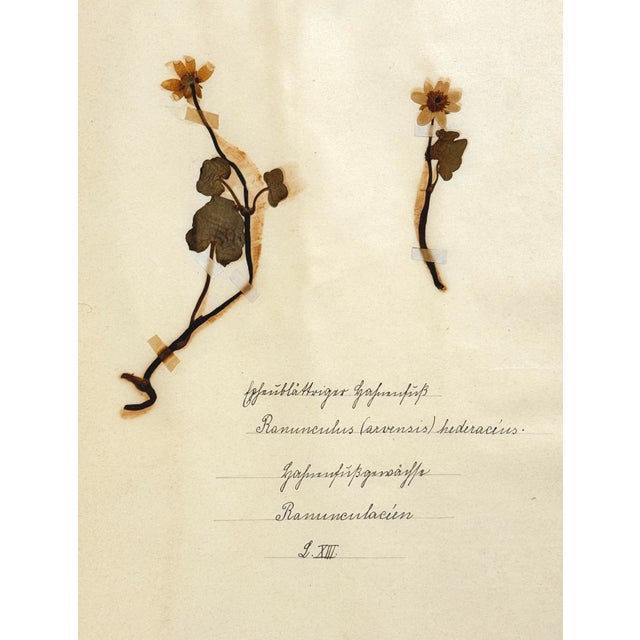 Epheublättriger Hahnenfuß
Ranunculus (arvensis) hederacéus.
Hahnenfußgewächse
Ranunculacéen
L. XIII.